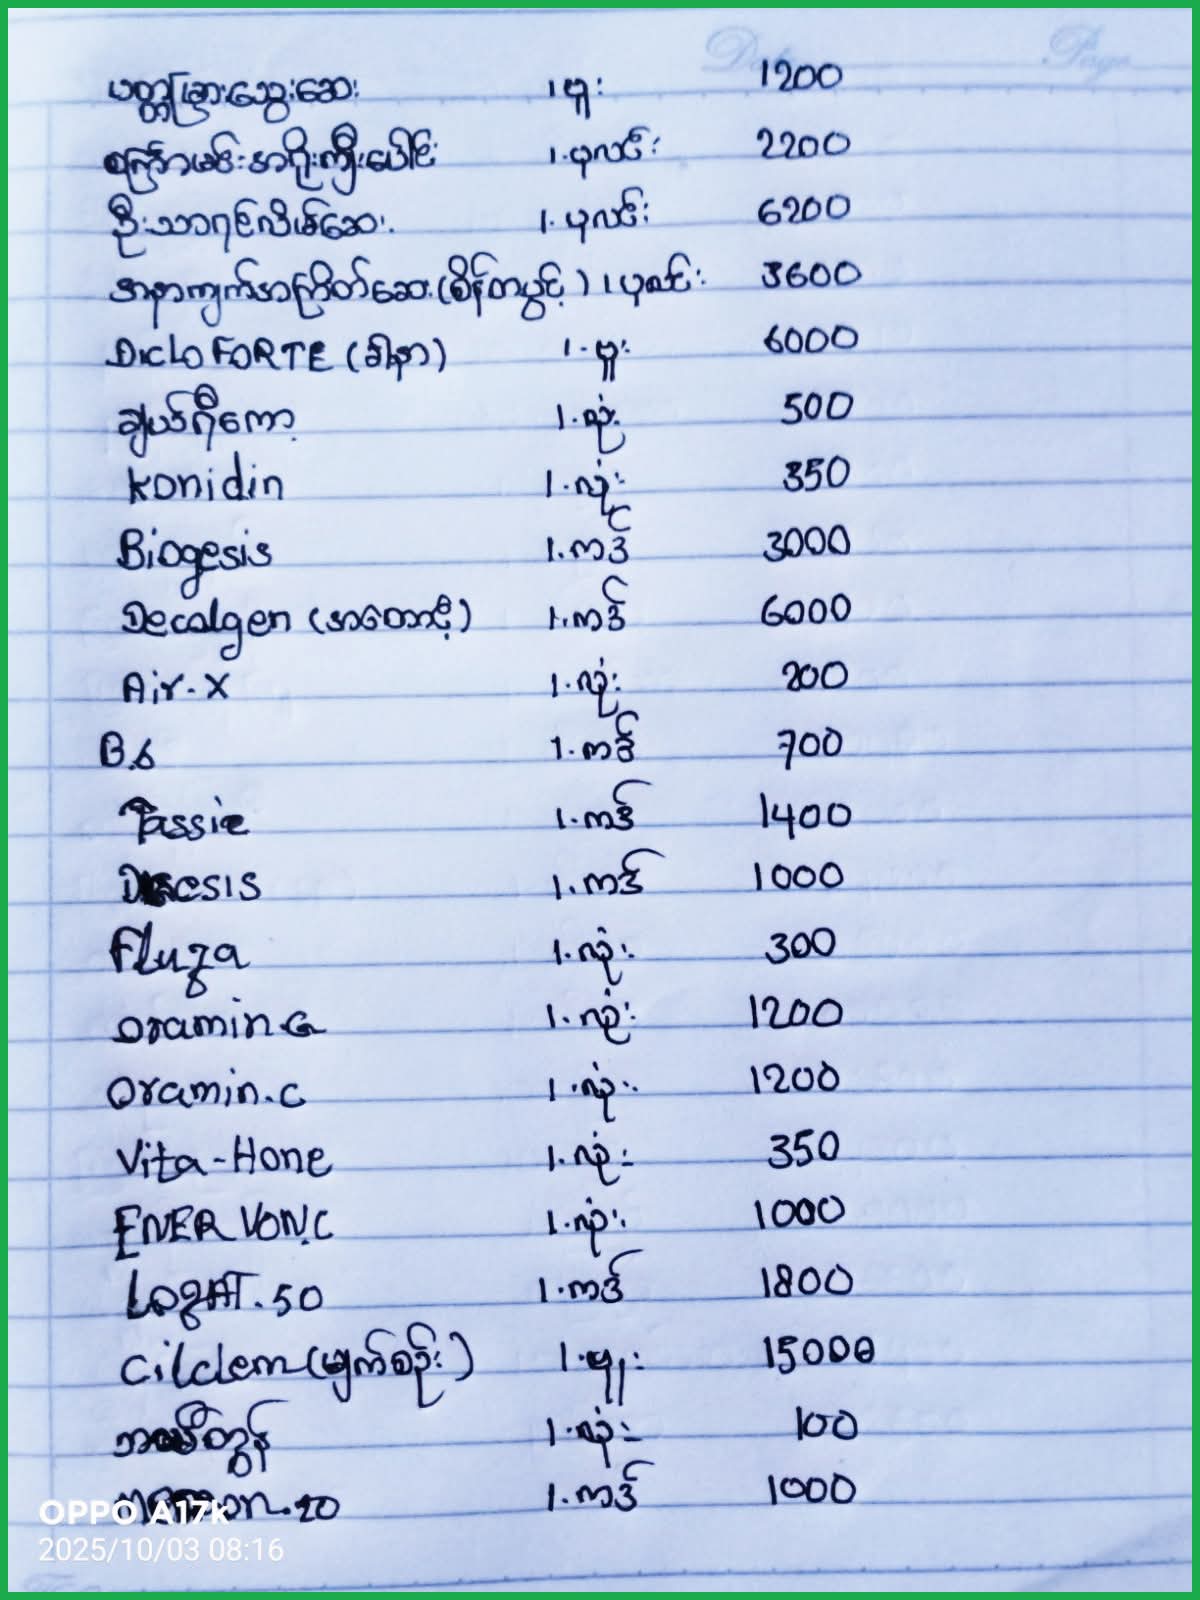 Date Page
ပတ္တမြားသွေးဆေး ၊ဗူး 1200
အကြောမင်းအရိုးကြီးပေါင်း ၊.ပုလင်း 2200
ဦးသာရင်လိမ်းဆေး. ၊. ပုလင်း 6200
အနာကျက်အကြိတ်ဆေး(စိန်တပွင့်) ၊ ပုလင်း 3600
DICLO FORTE (ခါးနာ) ၊.ဗူး 6000
ချယ်ရီကော့ ၊.လုံး 500
konidin ၊.လုံး 350
Biogesis ၊.ကဒ် 3000
Decolgen (အတောင့်) ၊.ကဒ် 6000
Air-X ၊.လုံး 200
B.6 ၊.ကဒ် 700
Tassie ၊.ကဒ် 1400
၊.ကဒ် 1000
Fluza ၊.လုံး 300
oramin.G ၊.လုံး 1200
Oramin.c ၊.လုံး 1200
Vita-Hone ၊.လုံး 350
ENER VON.C ၊.လုံး 1000
.50 ၊.ကဒ် 1800
Cilclem (မျက်စဉ်း) ၊.ဗျူး 15000
၊.လုံး 100
.20 ၊.ကဒ် 1000
OPPO A17k
2025/10/03 08:16